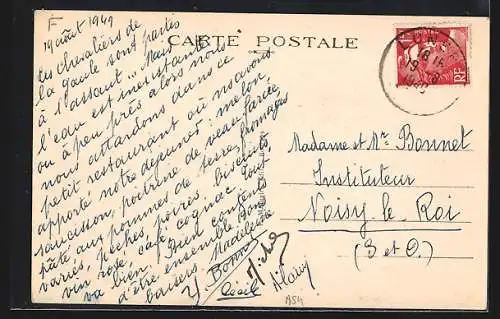 F
19 août 1949
CARTE POSTALE
Les chevaliers de
la Gaule sont partis
à l'assaut... Mais
l'eau est inexistante
ou à peu près alors nous
nous attardons dans ce
petit restaurant où nous avons
apporté notre déjeuner: melon
saucisson, poitrine de veau farcie
pâté aux pommes de terre, fromages
variés, pêches, poires, biscuits,
vin rosé, café, cognac. Tout
va bien. Bien contents
d'être ensemble. Bons
baisers Madeleine
Bonnet
Cécile
Michel
Alain
POSTES
RF
Madame et Mr. Bonnet
Instituteur
Noisy-le-Roi
(S et O)
A54